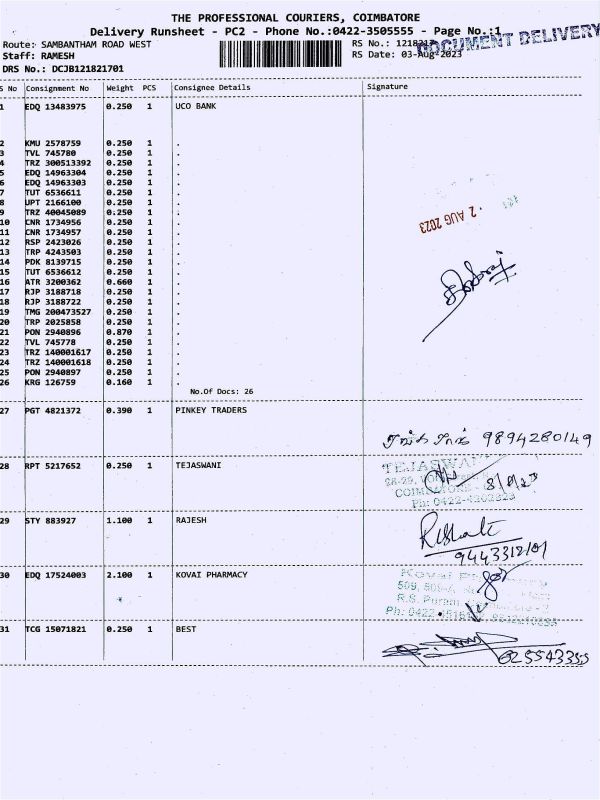 THE PROFESSIONAL COURIERS, COIMBATORE
Delivery Runsheet - PC2 - Phone No.:0422-3505555 - Page No.:1
DOCUMENT DELIVERY
Route: SAMBANTHAM ROAD WEST
RS No.:
Staff: RAMESH
RS Date: 03-Aug-2023
DRS No.: DCJB121821701
S No Consignment No Weight PCS Consignee Details Signature
1 EDQ 13483975 0.250 1 UCO BANK
2 KMU 2578759 0.250 1 .
3 TVL 745780 0.250 1 .
4 TRZ 300513392 0.250 1 .
5 EDQ 14963304 0.250 1 .
6 EDQ 14963303 0.250 1 .
7 TUT 6536611 0.250 1 .
8 UPT 2166100 0.250 1 .
9 TRZ 40045089 0.250 1 .
10 CNR 1734956 0.250 1 .
11 CNR 1734957 0.250 1 .
12 RSP 2423026 0.250 1 .
13 TRP 4243503 0.250 1 .
14 PDK 8139715 0.250 1 .
15 TUT 6536612 0.250 1 .
16 ATR 3200362 0.660 1 .
17 RJP 3188718 0.250 1 .
18 RJP 3188722 0.250 1 .
19 TMG 200473527 0.250 1 .
20 TRP 2025858 0.250 1 .
21 PON 2940896 0.870 1 .
22 TVL 745778 0.250 1 .
23 TRZ 140001617 0.250 1 .
24 TRZ 140001618 0.250 1 .
25 PON 2940897 0.250 1 .
26 KRG 126759 0.160 1 .
2 AUG 2023
No.Of Docs: 26
27 PGT 4821372 0.390 1 PINKEY TRADERS
9894280149
28 RPT 5217652 0.250 1 TEJASWANI
TEJASWANI
29 STY 883927 1.100 1 RAJESH
30 EDQ 17524003 2.100 1 KOVAI PHARMACY
R.S. Puram
31 TCG 15071821 0.250 1 BEST